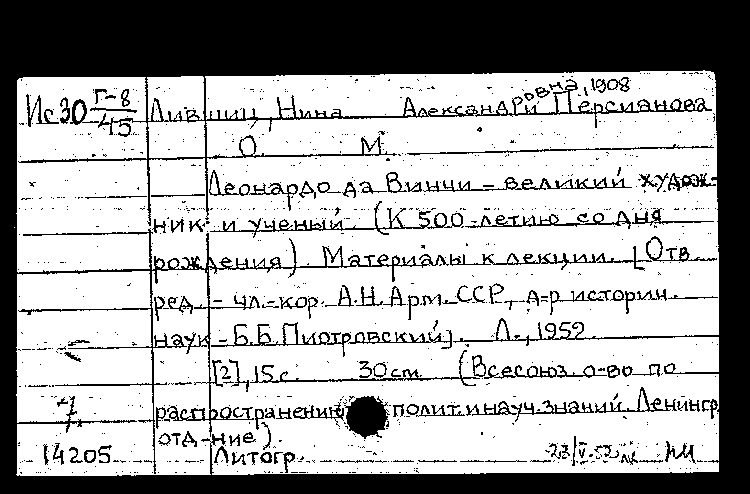 Ис30 Г-8/45 Лившиц, Нина Александровна, 1908 Персианова
О. М.
Леонардо да Винчи - великий худож-
ник и ученый. (К 500-летию со дня
рождения) Материалы к лекции. [Отв.
ред. - чл.-кор. А.Н. Арм. ССР, д-р историч.
наук - Б.Б. Пиотровский]. Л., 1952
[2], 15 с. 30 см (Всесоюз. о-во по
7. распространению полит. и науч. знаний. Ленингр.
отд-ние).
14205 Литогр. 23/V-52